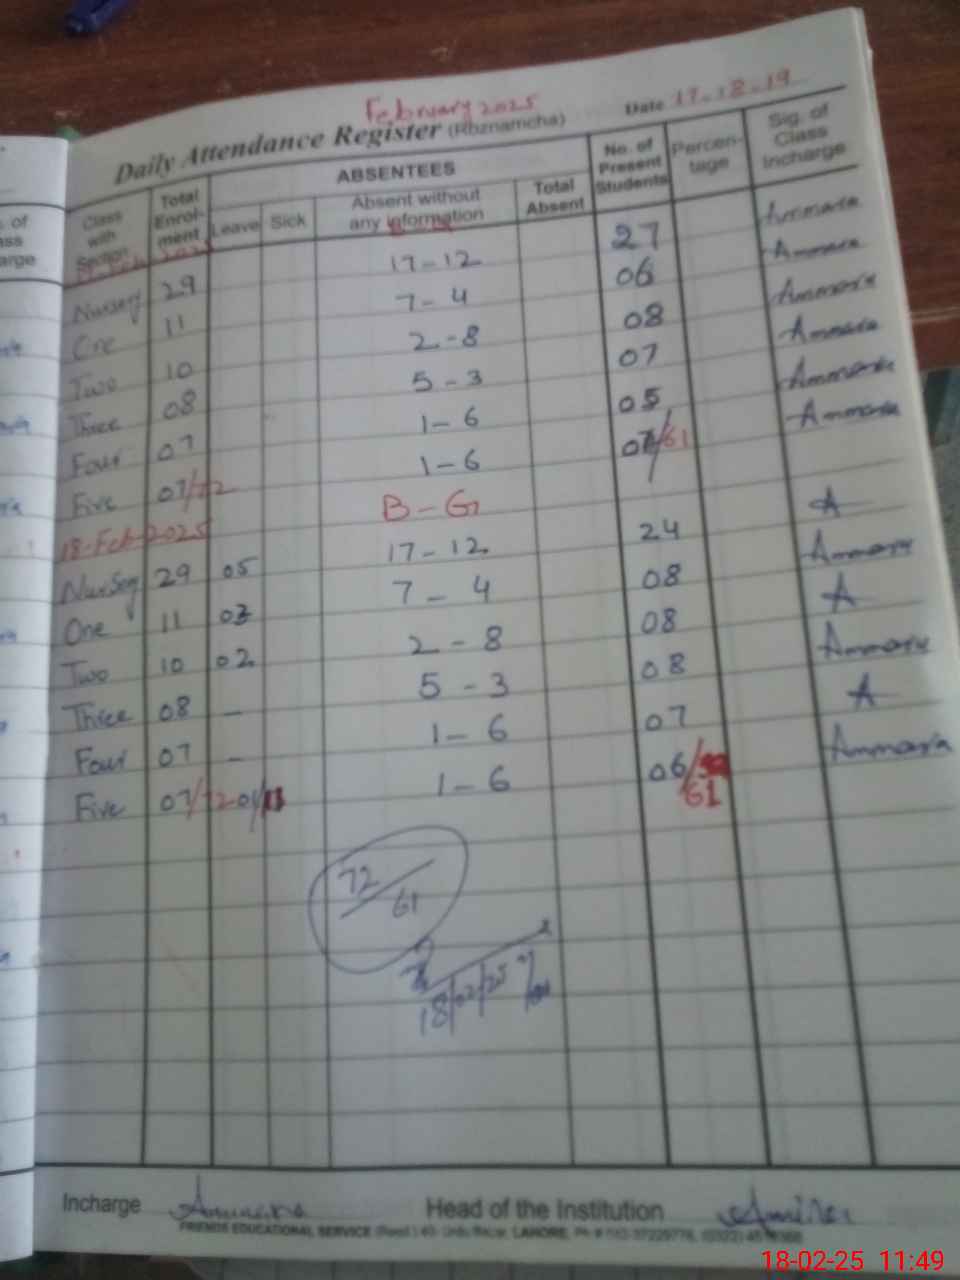 February 2025
Daily Attendance Register (Roznamcha) Date 17-18-19
Class with Section Total Enrolment ABSENTEES No. of Present Students Percentage Sig. of Class Incharge
Leave Sick Absent without any information Total Absent
Nursery 29 17-12 27 Ammara
One 11 7-4 06 Ammara
Two 10 2-8 08 Ammara
Three 08 5-3 07 Ammara
Four 07 1-6 05 Ammara
Five 07/72 1-6 07/61 Ammara
18-Feb-2025 B-G
Nursery 29 05 17-12 24 A
One 11 03 7-4 08 Ammara
Two 10 02 2-8 08 A
Three 08 - 5-3 08 Ammara
Four 07 - 1-6 07 A
Five 07/72 01/11 1-6 06/61 Ammara
72/61
18/02/25
Incharge Ammara Head of the Institution
FRIENDS EDUCATIONAL SERVICE (Regd.) 40- Urdu Bazar, LAHORE.
18-02-25 11:49